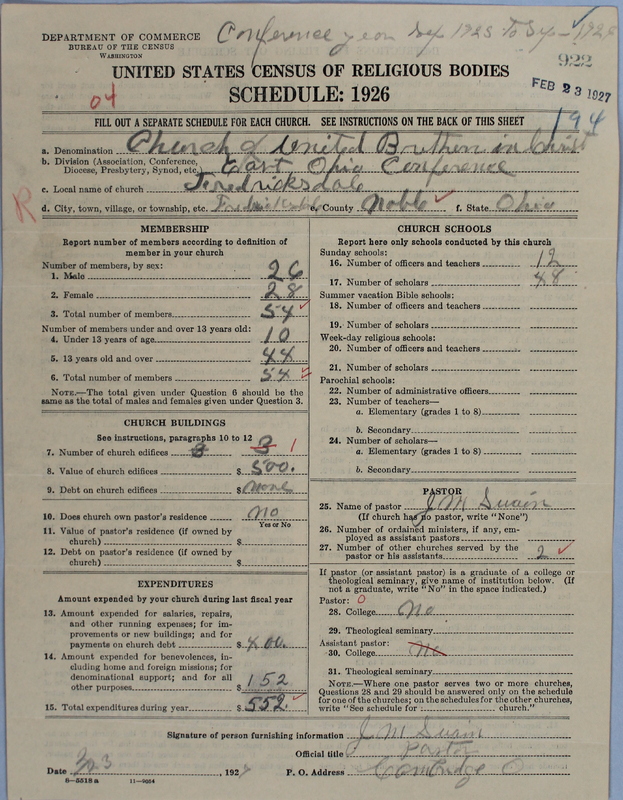 DEPARTMENT OF COMMERCE
BUREAU OF THE CENSUS
WASHINGTON
Conference year Sep 1925 To Sep - 1926
922
UNITED STATES CENSUS OF RELIGIOUS BODIES
SCHEDULE: 1926
FEB 23 1927
04
FILL OUT A SEPARATE SCHEDULE FOR EACH CHURCH. SEE INSTRUCTIONS ON THE BACK OF THIS SHEET
194
a. Denomination Church of United Brethren in Christ
b. Division (Association, Conference, Diocese, Presbytery, Synod, etc. East Ohio Conference
c. Local name of church Fredricksdale
R
d. City, town, village, or township, etc. Fredricksdale e. County Noble f. State Ohio
MEMBERSHIP
Report number of members according to definition of
member in your church
Number of members, by sex:
1. Male 26
2. Female 28
3. Total number of members 54
Number of members under and over 13 years old:
4. Under 13 years of age 10
5. 13 years old and over 44
6. Total number of members 54
NOTE.—The total given under Question 6 should be
same as the total of males and females given under Question 3.
CHURCH BUILDINGS
See instructions, paragraphs 10 to 12
7. Number of church edifices 3 3 1
8. Value of church edifices $ 500.
9. Debt on church edifices $ None
10. Does church own pastor's residence No
Yes or No
11. Value of pastor's residence (if owned by
church) $
12. Debt on pastor's residence (if owned by
church) $
EXPENDITURES
Amount expended by your church during last fiscal year
13. Amount expended for salaries, repairs,
and other running expenses; for im-
provements or new buildings; and for
payments on church debt $ 400.
14. Amount expended for benevolences, in-
cluding home and foreign missions; for
denominational support; and for all
other purposes $ 152
15. Total expenditures during year $ 552.
CHURCH SCHOOLS
Report here only schools conducted by this church
Sunday schools:
16. Number of officers and teachers 12
17. Number of scholars 48
Summer vacation Bible schools:
18. Number of officers and teachers
19. Number of scholars
Week-day religious schools:
20. Number of officers and teachers
21. Number of scholars
Parochial schools:
22. Number of administrative officers
23. Number of teachers—
a. Elementary (grades 1 to 8)
b. Secondary
24. Number of scholars—
a. Elementary (grades 1 to 8)
b. Secondary
PASTOR
25. Name of pastor J M Swain
(If church has no pastor, write "None")
26. Number of ordained ministers, if any, em-
ployed as assistant pastors
27. Number of other churches served by the
pastor or his assistants 2
If pastor (or assistant pastor) is a graduate of a college or
theological seminary, give name of institution below. (If
not a graduate, write "No" in the space indicated.)
Pastor: 0
28. College No
29. Theological seminary
Assistant pastor:
30. College No
31. Theological seminary
NOTE.—Where one pastor serves two or more churches,
Questions 28 and 29 should be answered only on the schedule
for one of the churches; on the schedules for the other churches,
write "See schedule for church."
Signature of person furnishing information J M Swain
Official title Pastor
Date 3, 1927 P. O. Address Cambridge O
8-5518a 11-9554